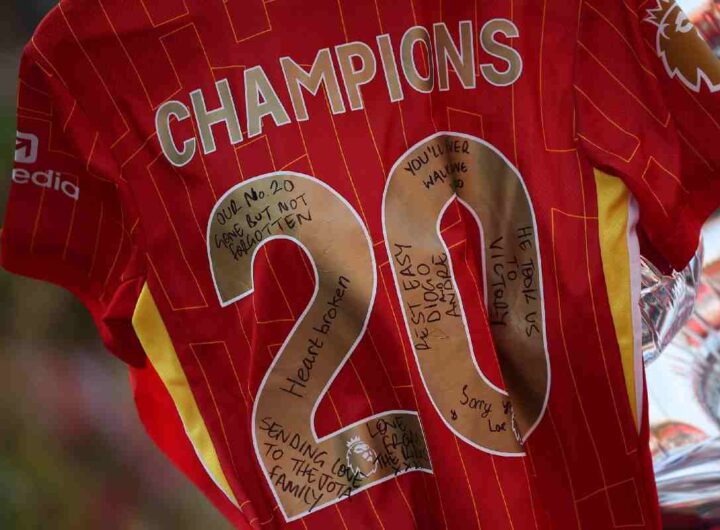 CHAMPIONS
20
edia
OUR No. 20
GONE BUT NOT
FORGOTTEN
Heart broken
SENDING LOVE
TO THE JOTA
FAMILY
LOVE
FROM
THE
YOU'LL
WALK
REST EASY
DIOGO
AND
ANDRE
HE TOOK US
TO
VICTORY
Sorry